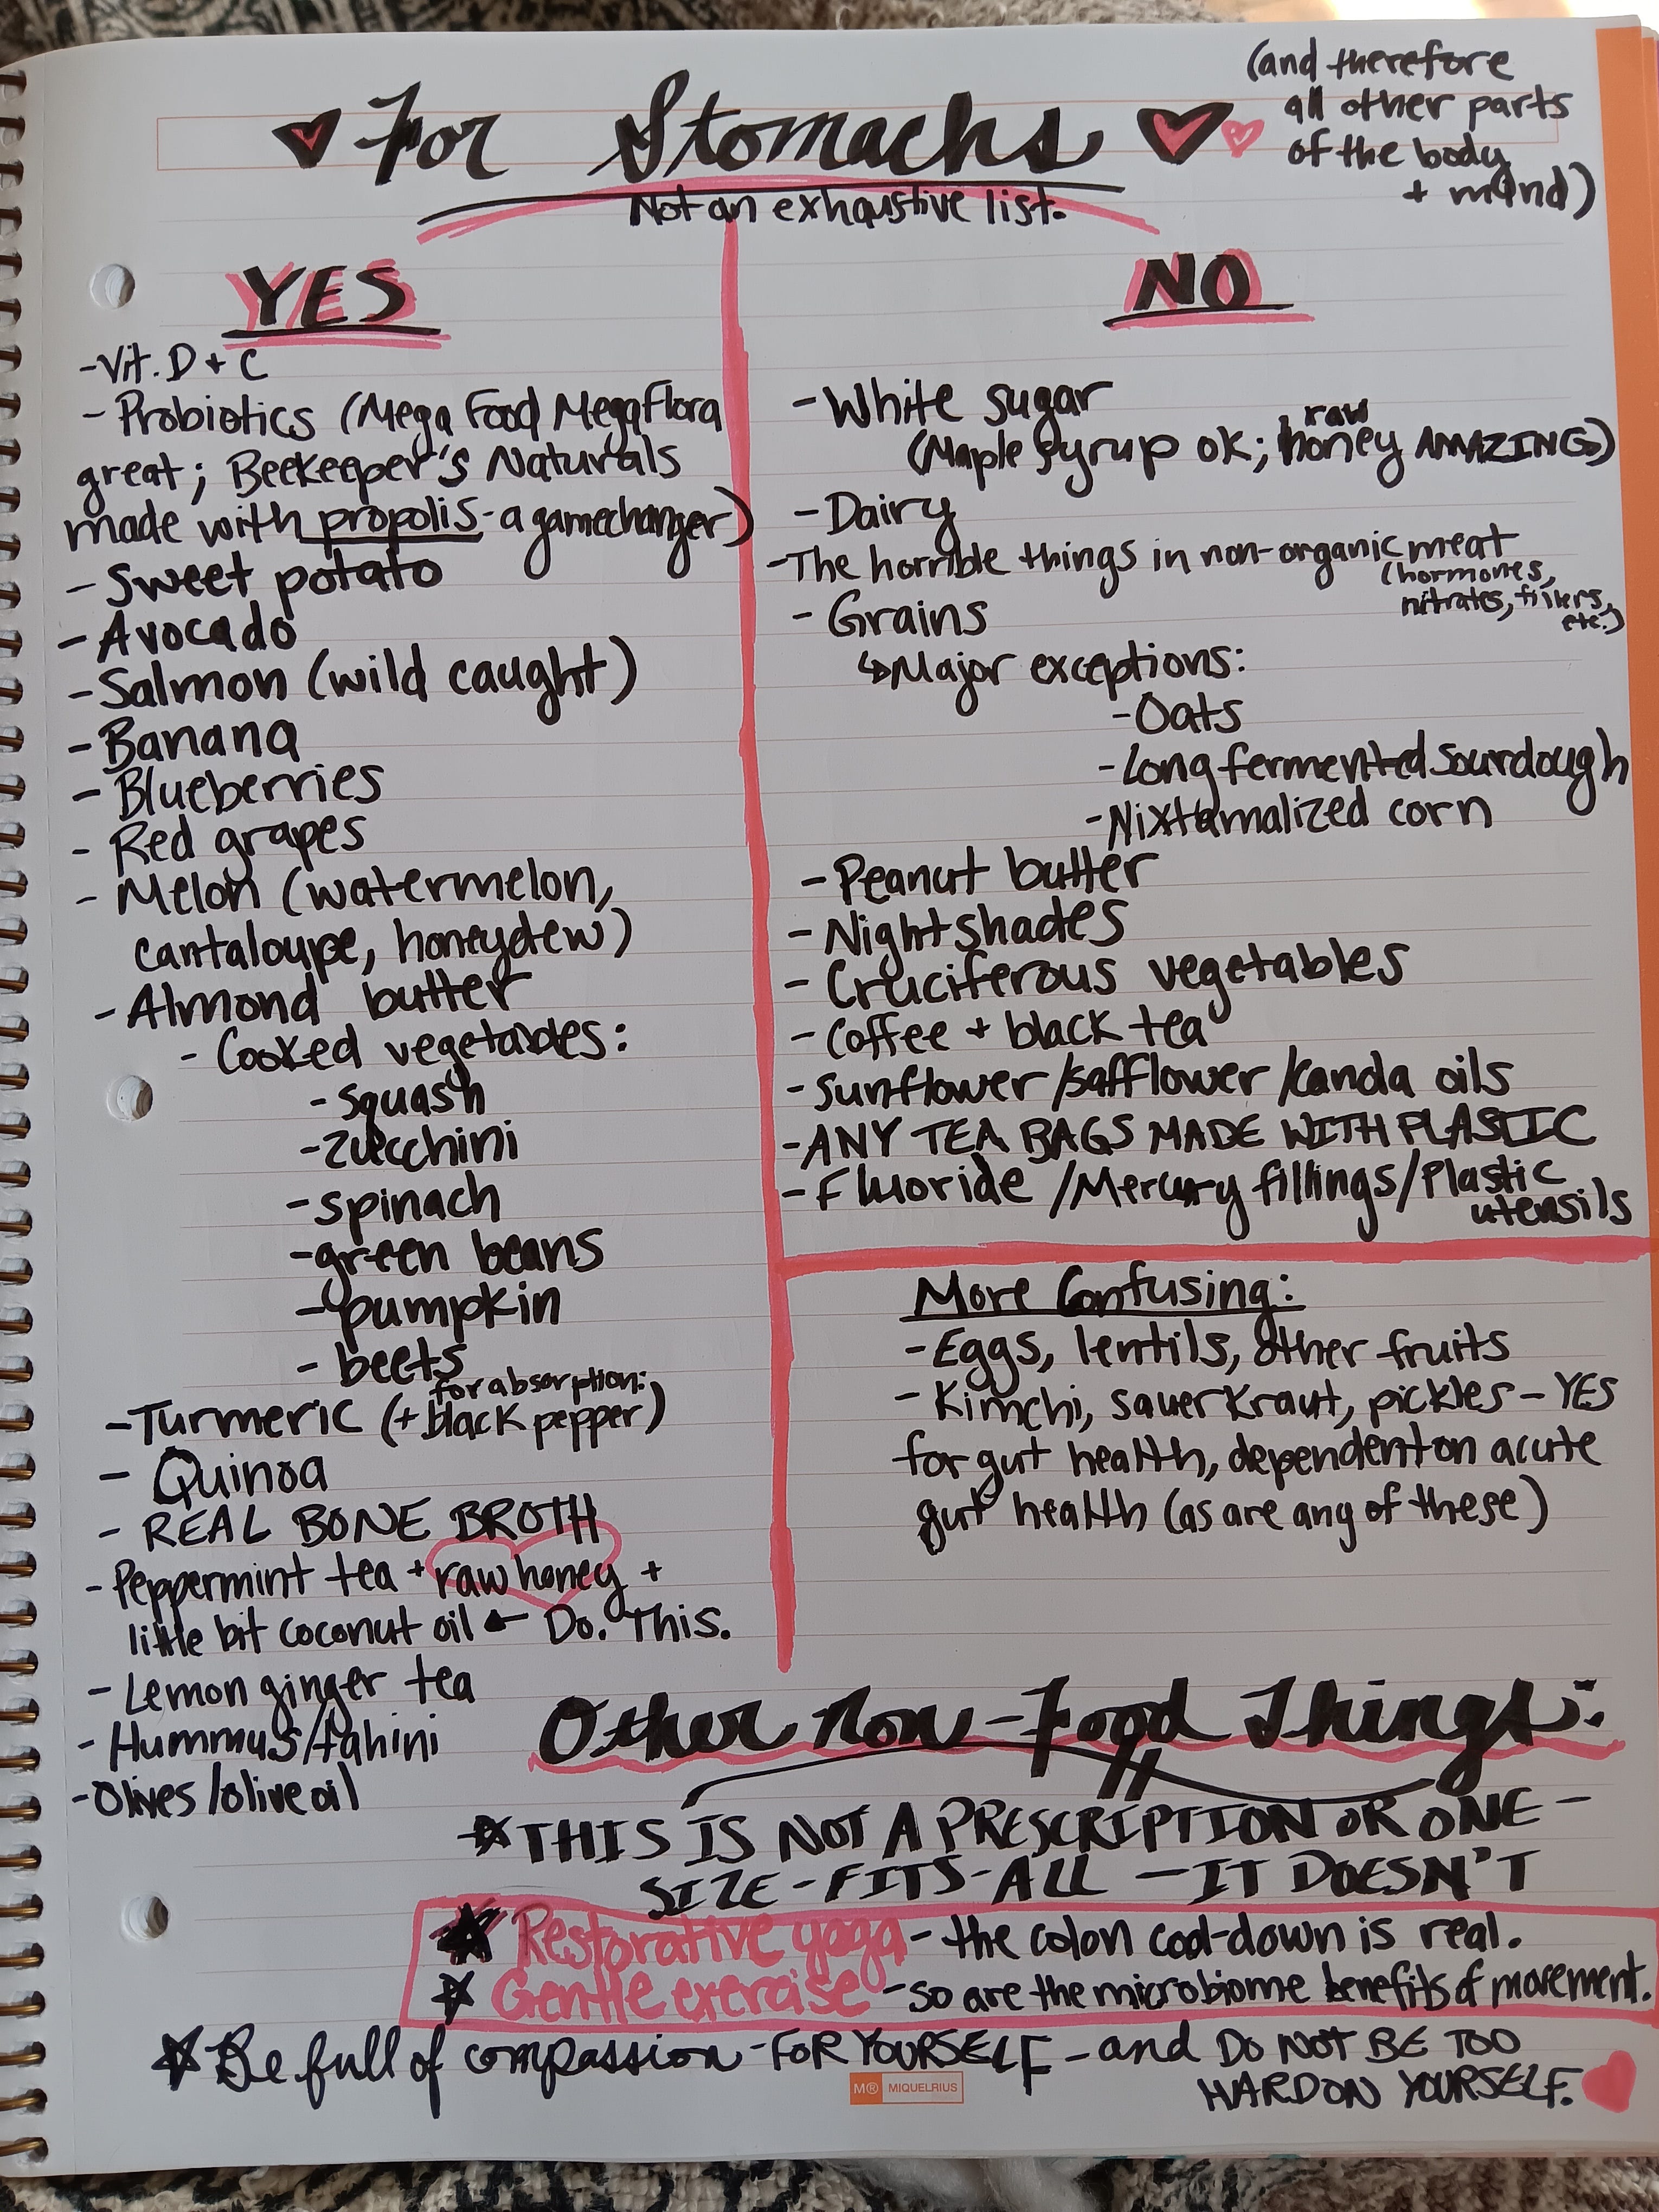 For Stomachs
(and therefore
all other parts
of the body
+ mind)
Not an exhaustive list.
YES
-Vit. D + C
- Probiotics (Mega Food MegaFlora
great; Beekeeper's Naturals
made with propolis - a gamechanger)
- Sweet potato
- Avocado
- Salmon (wild caught)
- Banana
- Blueberries
- Red grapes
- Melon (watermelon,
cantaloupe, honeydew)
- Almond butter
- Cooked vegetables:
- squash
- zucchini
- spinach
- green beans
- pumpkin
- beets
for absorption:
- Turmeric (+ black pepper)
- Quinoa
- REAL BONE BROTH
- Peppermint tea + raw honey +
little bit coconut oil ← Do. This.
- Lemon ginger tea
- Hummus/tahini
- Olives/olive oil
NO
- White sugar
raw
(Maple syrup ok; honey AMAZING)
- Dairy
- The horrible things in non-organic meat
(hormones,
nitrates, fillers,
etc.)
- Grains
↳ Major exceptions:
- Oats
- Long fermented sourdough
- Nixtamalized corn
- Peanut butter
- Nightshades
- Cruciferous vegetables
- Coffee + black tea
- Sunflower/safflower/canola oils
- ANY TEA BAGS MADE WITH PLASTIC
- Fluoride/Mercury fillings/Plastic
utensils
More Confusing:
- Eggs, lentils, other fruits
- Kimchi, sauerkraut, pickles - YES
for gut health, dependent on acute
gut health (as are any of these)
Other Non-Food Things:
THIS IS NOT A PRESCRIPTION OR ONE-
SIZE-FITS-ALL - IT DOESN'T
Restorative yoga - the colon cool-down is real.
Gentle exercise - so are the microbiome benefits of movement.
Be full of compassion - FOR YOURSELF - and DO NOT BE TOO
HARD ON YOURSELF.
M® MIQUELRIUS